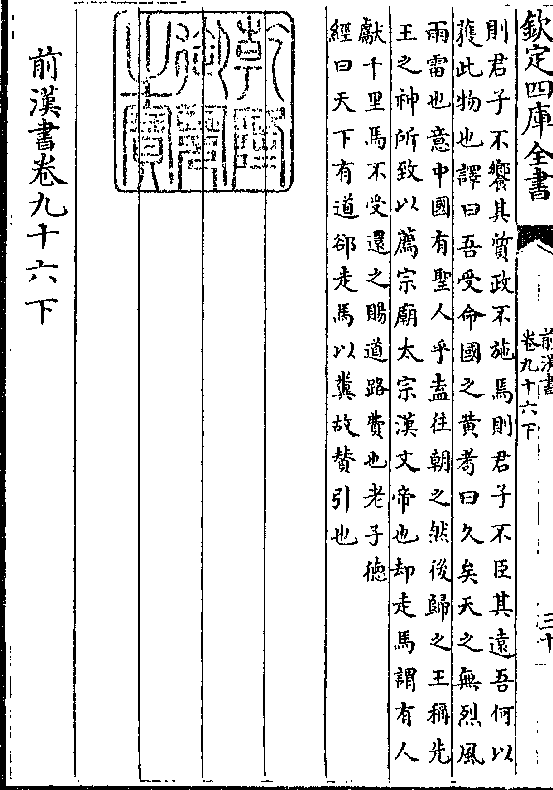 欽定四庫全書
前漢書
卷九十六下
三十
則君子不饗其質政不施焉則君子不臣其遠吾何以
獲此物也譯曰吾受命國之黃耇曰久矣天之無烈風
雨雷也意中國有聖人乎盍往朝之然後歸之王稱先
王之神所致以薦宗廟太宗漢文帝也却走馬謂有人
獻千里馬不受還之賜道路費也老子德
經曰天下有道郤走馬以糞故贊引也
乾隆御覽之寶
前漢書卷九十六下